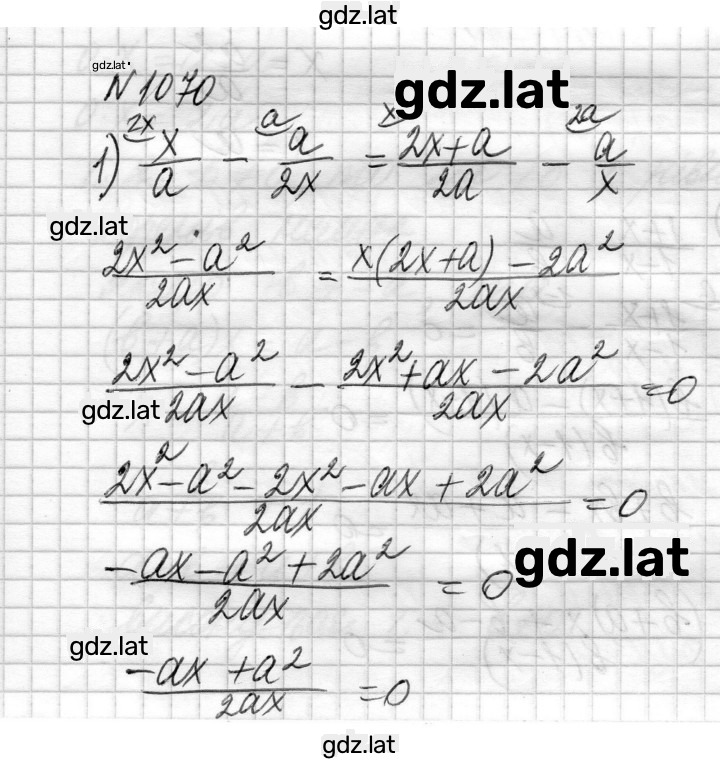 gdz.lat
gdz.lat
N 1070
gdz.lat
2x a x 2a
1) x/a - a/2x = 2x+a/2a - a/x
gdz.lat
2x² - a²/2ax = x(2x+a) - 2a²/2ax
2x² - a²/2ax - 2x² + ax - 2a²/2ax = 0
gdz.lat
2x² - a² - 2x² - ax + 2a²/2ax = 0
-ax - a² + 2a²/2ax = 0
gdz.lat
gdz.lat
-ax + a²/2ax = 0
gdz.lat